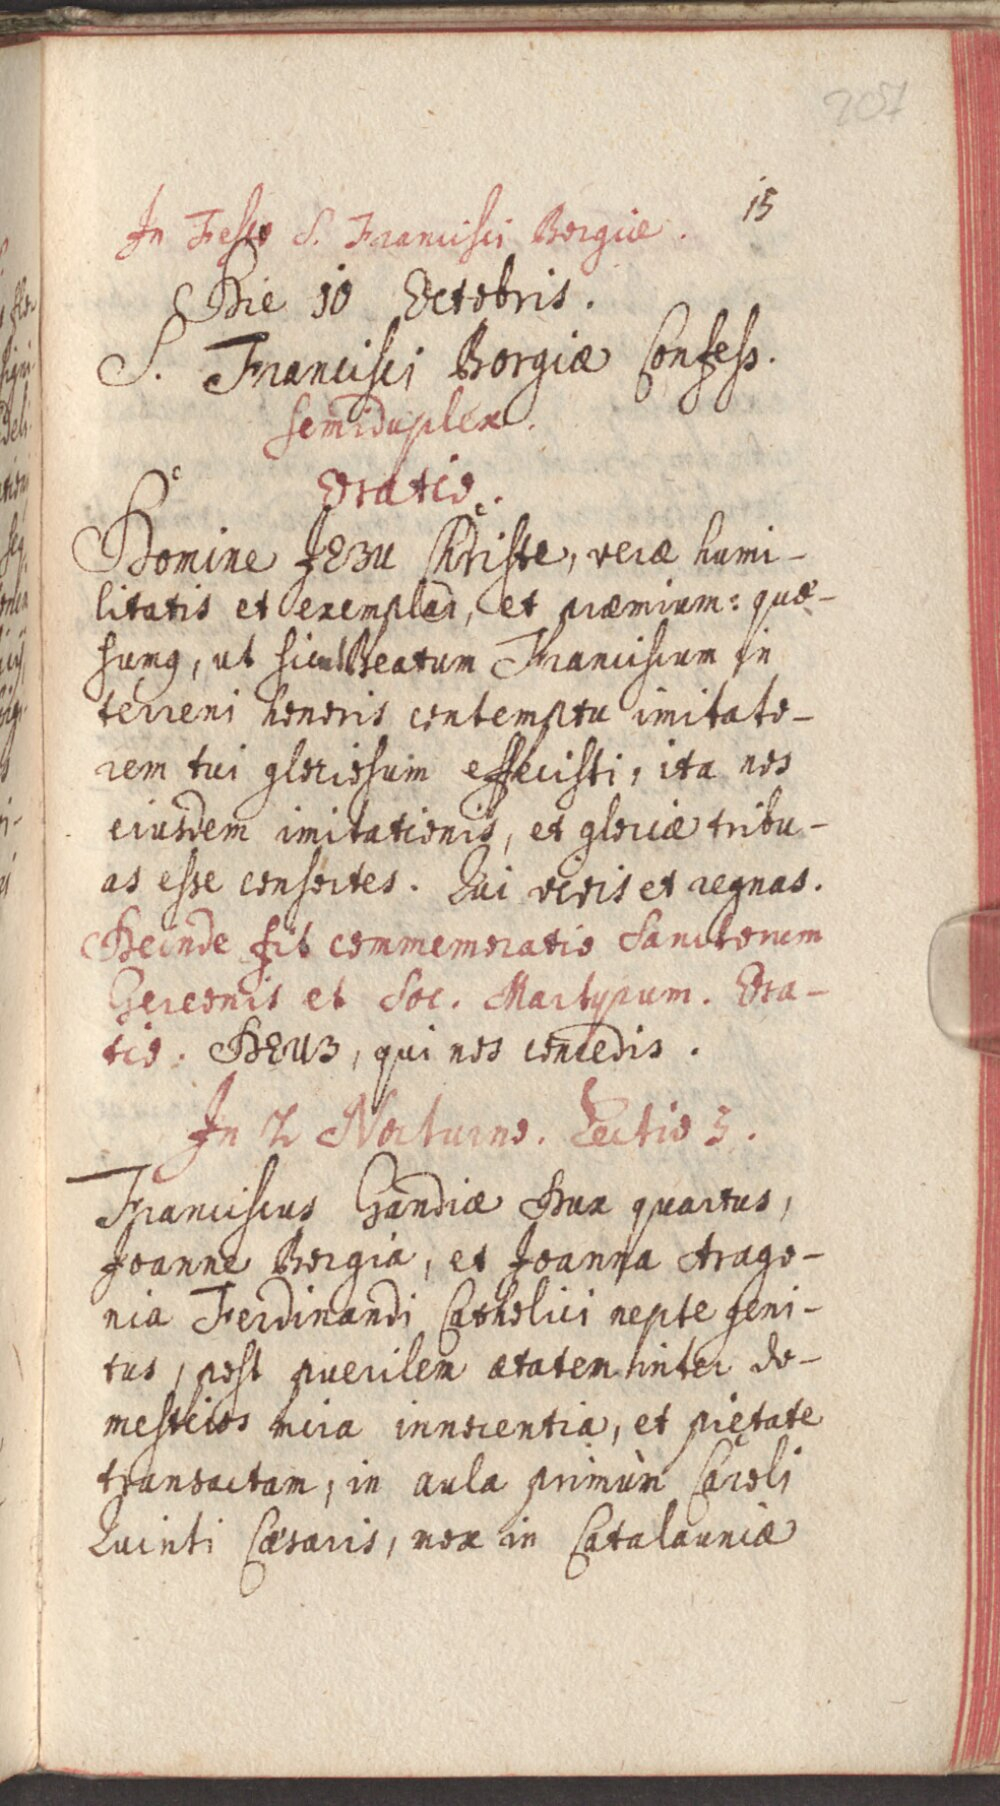 207
In Festo S. Francisci Borgiæ. 15
Die 10 Octobris.
S. Francisci Borgiæ Confess.
semiduplex.
Oratio.
Domine JESU Christe, veræ humi-
litatis et exemplar, et præmium: quæ-
sumꝰ, ut sicut Beatum Franciscum in
terreni honoris contemptu imitato-
rem tui gloriosum effecisti, ita nos
eiusdem imitationis, et gloriæ tribu-
as esse consortes. Qui vivis et regnas.
Deinde fit commemoratio Sanctorum
Gereonis et Soc. Martyrum. Ora-
tio. DEUS, qui nos concedis.
In 2 Nocturno. Lectio 3.
Franciscus Gandiæ Dux quartus,
Joanne Borgia, et Joanna Arago-
nia Ferdinandi Catholici nepte geni-
tus, post puerilem ætatem inter do-
mesticos mira innocentia, et pietate
transactam, in aula primùm Caroli
Quinti Cæsaris, mox in Catalauniæ